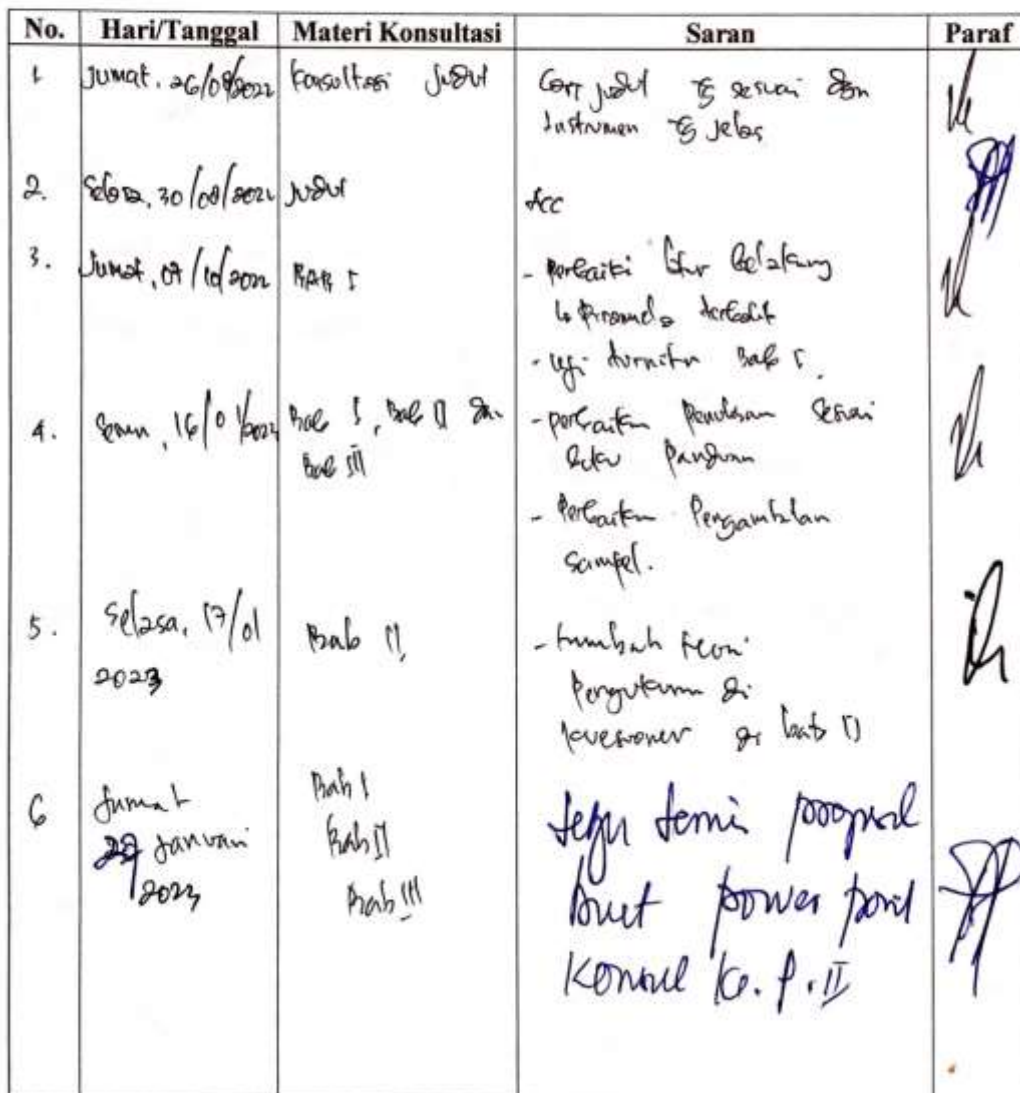 No. Hari/Tanggal Materi Konsultasi Saran Paraf
1 Jumat, 26/08/2022 Konsultasi Judul Cari judul yg sesuai dgn
Instrumen yg jelas
2. Selasa, 30/08/2022 Judul Acc
3. Jumat, 07/10/2022 BAB I - Perbaiki latar belakang
↳ Piramida terbalik
- uji turnitin Bab I.
4. Senin, 16/01/2023 Bab I, Bab II dan - perbaikan Penulisan sesuai
Bab III buku Panduan
- Perbaikan Pengambilan
sampel.
5. Selasa, 17/01 Bab II - tambah teori
2023 Pengukuran di
kuesioner di bab II
6 Jumat Bab I
Januari Bab II proposal
2023 Bab III buat power point
Konsul ke. P. II